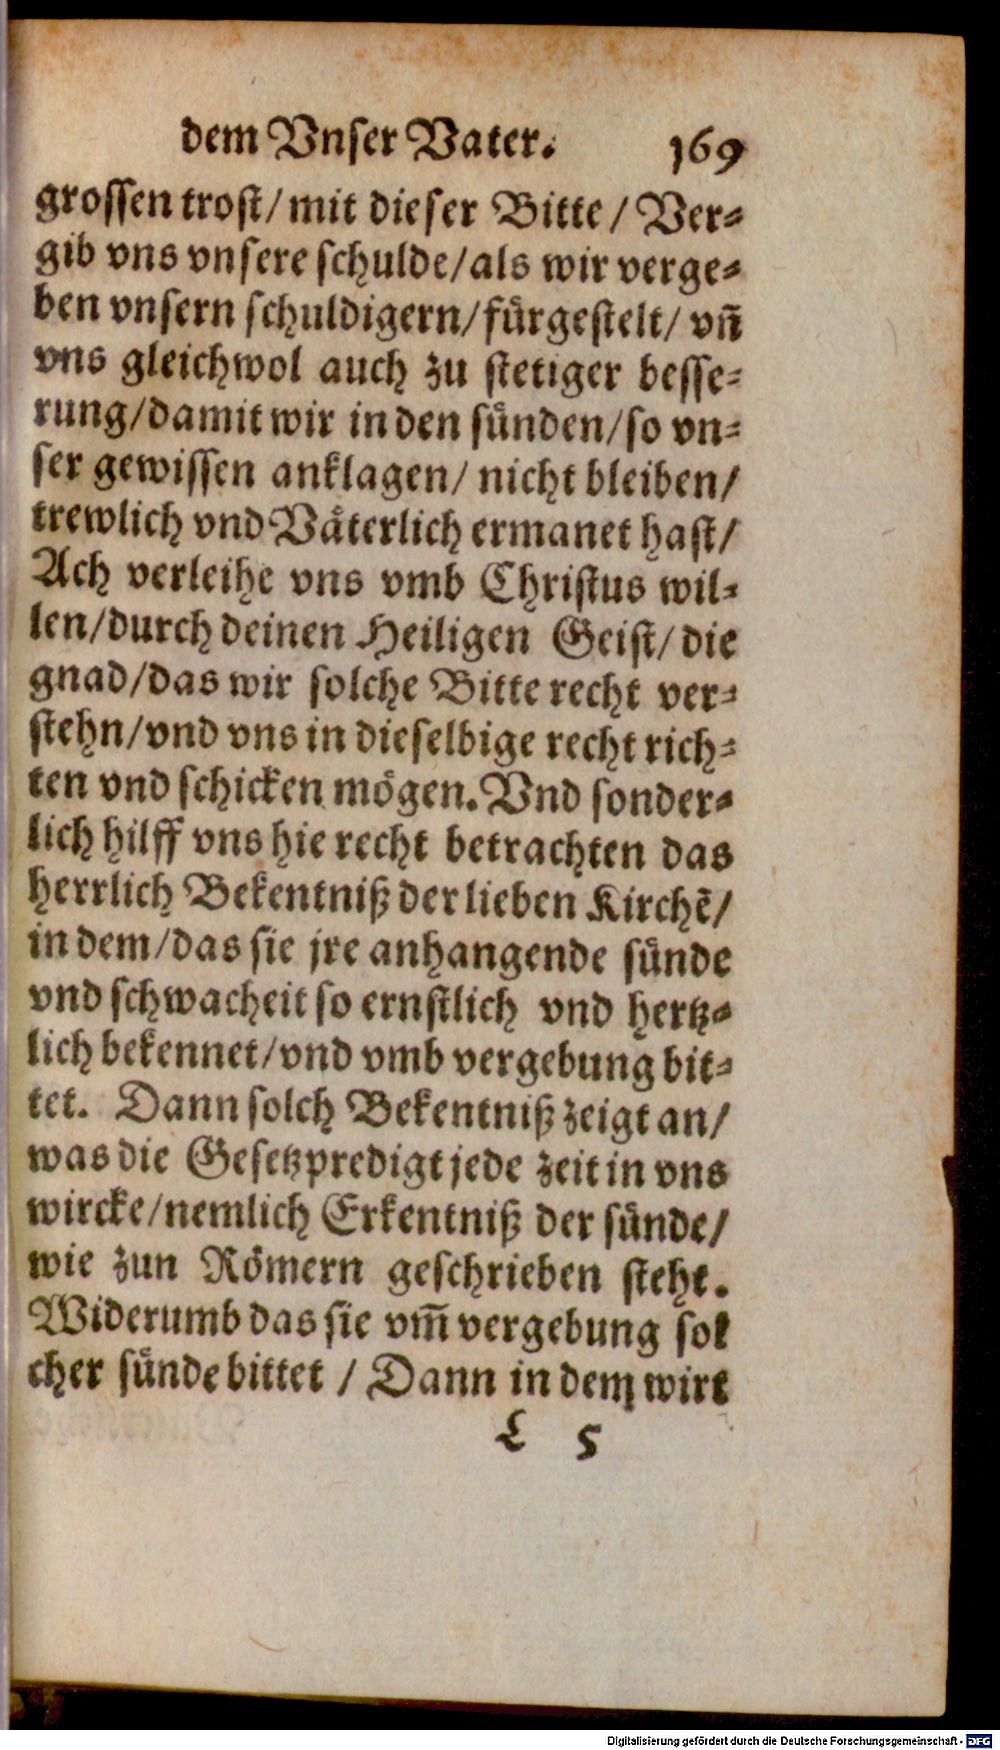 dem Vnser Vater. 169
grossen trost/ mit dieser Bitte/ Ver⸗
gib vns vnsere schulde/ als wir verge⸗
ben vnsern schuldigern/ fürgestelt/ vñ
vns gleichwol auch zu stetiger besse⸗
rung/ damit wir in den sünden/ so vn⸗
ser gewissen anklagen/ nicht bleiben/
trewlich vnd Väterlich ermanet hast/
Ach verleihe vns vmb Christus wil⸗
len/ durch deinen Heiligen Geist/ die
gnad/ das wir solche Bitte recht ver⸗
stehn/ vnd vns in dieselbige recht rich⸗
ten vnd schicken mögen. Vnd sonder⸗
lich hilff vns hie recht betrachten das
herrlich Bekentniß der lieben Kirchẽ/
in dem/ das sie jre anhangende sünde
vnd schwacheit so ernstlich vnd hertz⸗
lich bekennet/ vnd vmb vergebung bit⸗
tet. Dann solch Bekentniß zeigt an/
was die Gesetzpredigt jede zeit in vns
wircke/ nemlich Erkentniß der sünde/
wie zun Römern geschrieben steht.
Widerumb das sie vm̃ vergebung sol
cher sünde bittet / Dann in dem wirt
L 5
Digitalisierung gefördert durch die Deutsche Forschungsgemeinschaft - DFG